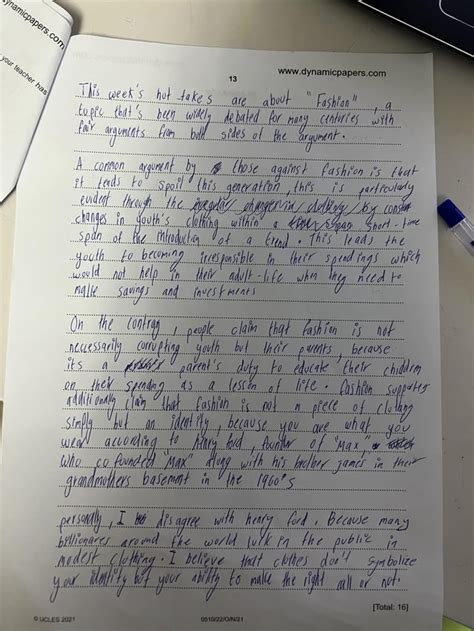 www.dynamicpapers.com
ynamicpapers.com
your teacher has
13
This week's hot takes are about "Fashion", a
topic that's been widely debated for many centuries with
fair arguments from both sides of the argument.
A common argument by those against fashion is that
it tends to spoil this generation, this is particularly
evident through the by constant
changes in youth's clothing within a short-time
span of the introduction of a trend. This leads the
youth to becoming irresponsible in their spendings which
would not help in their adult-life when they need to
make savings and investments
On the contrary, people claim that fashion is not
neccessarily corrupting youth but their parents, because
its a parent's duty to educate their children
on their spending as a lesson of life. Fashion supporters
additionally claim that fashion is not a piece of clothing
simply but an identity, because you are what you
wear according to henry ford, founder of "Max",
who co founded "Max" along with his brother james in their
grandmothers basement in the 1960's
personally, I disagree with henry ford. Because many
billionares around the world lurk in the public in
modest clothing. I believe that clothes don't symbolize
your identity but your ability to make the right call or not.
[Total: 16]
© UCLES 2021
0510/22/O/N/21